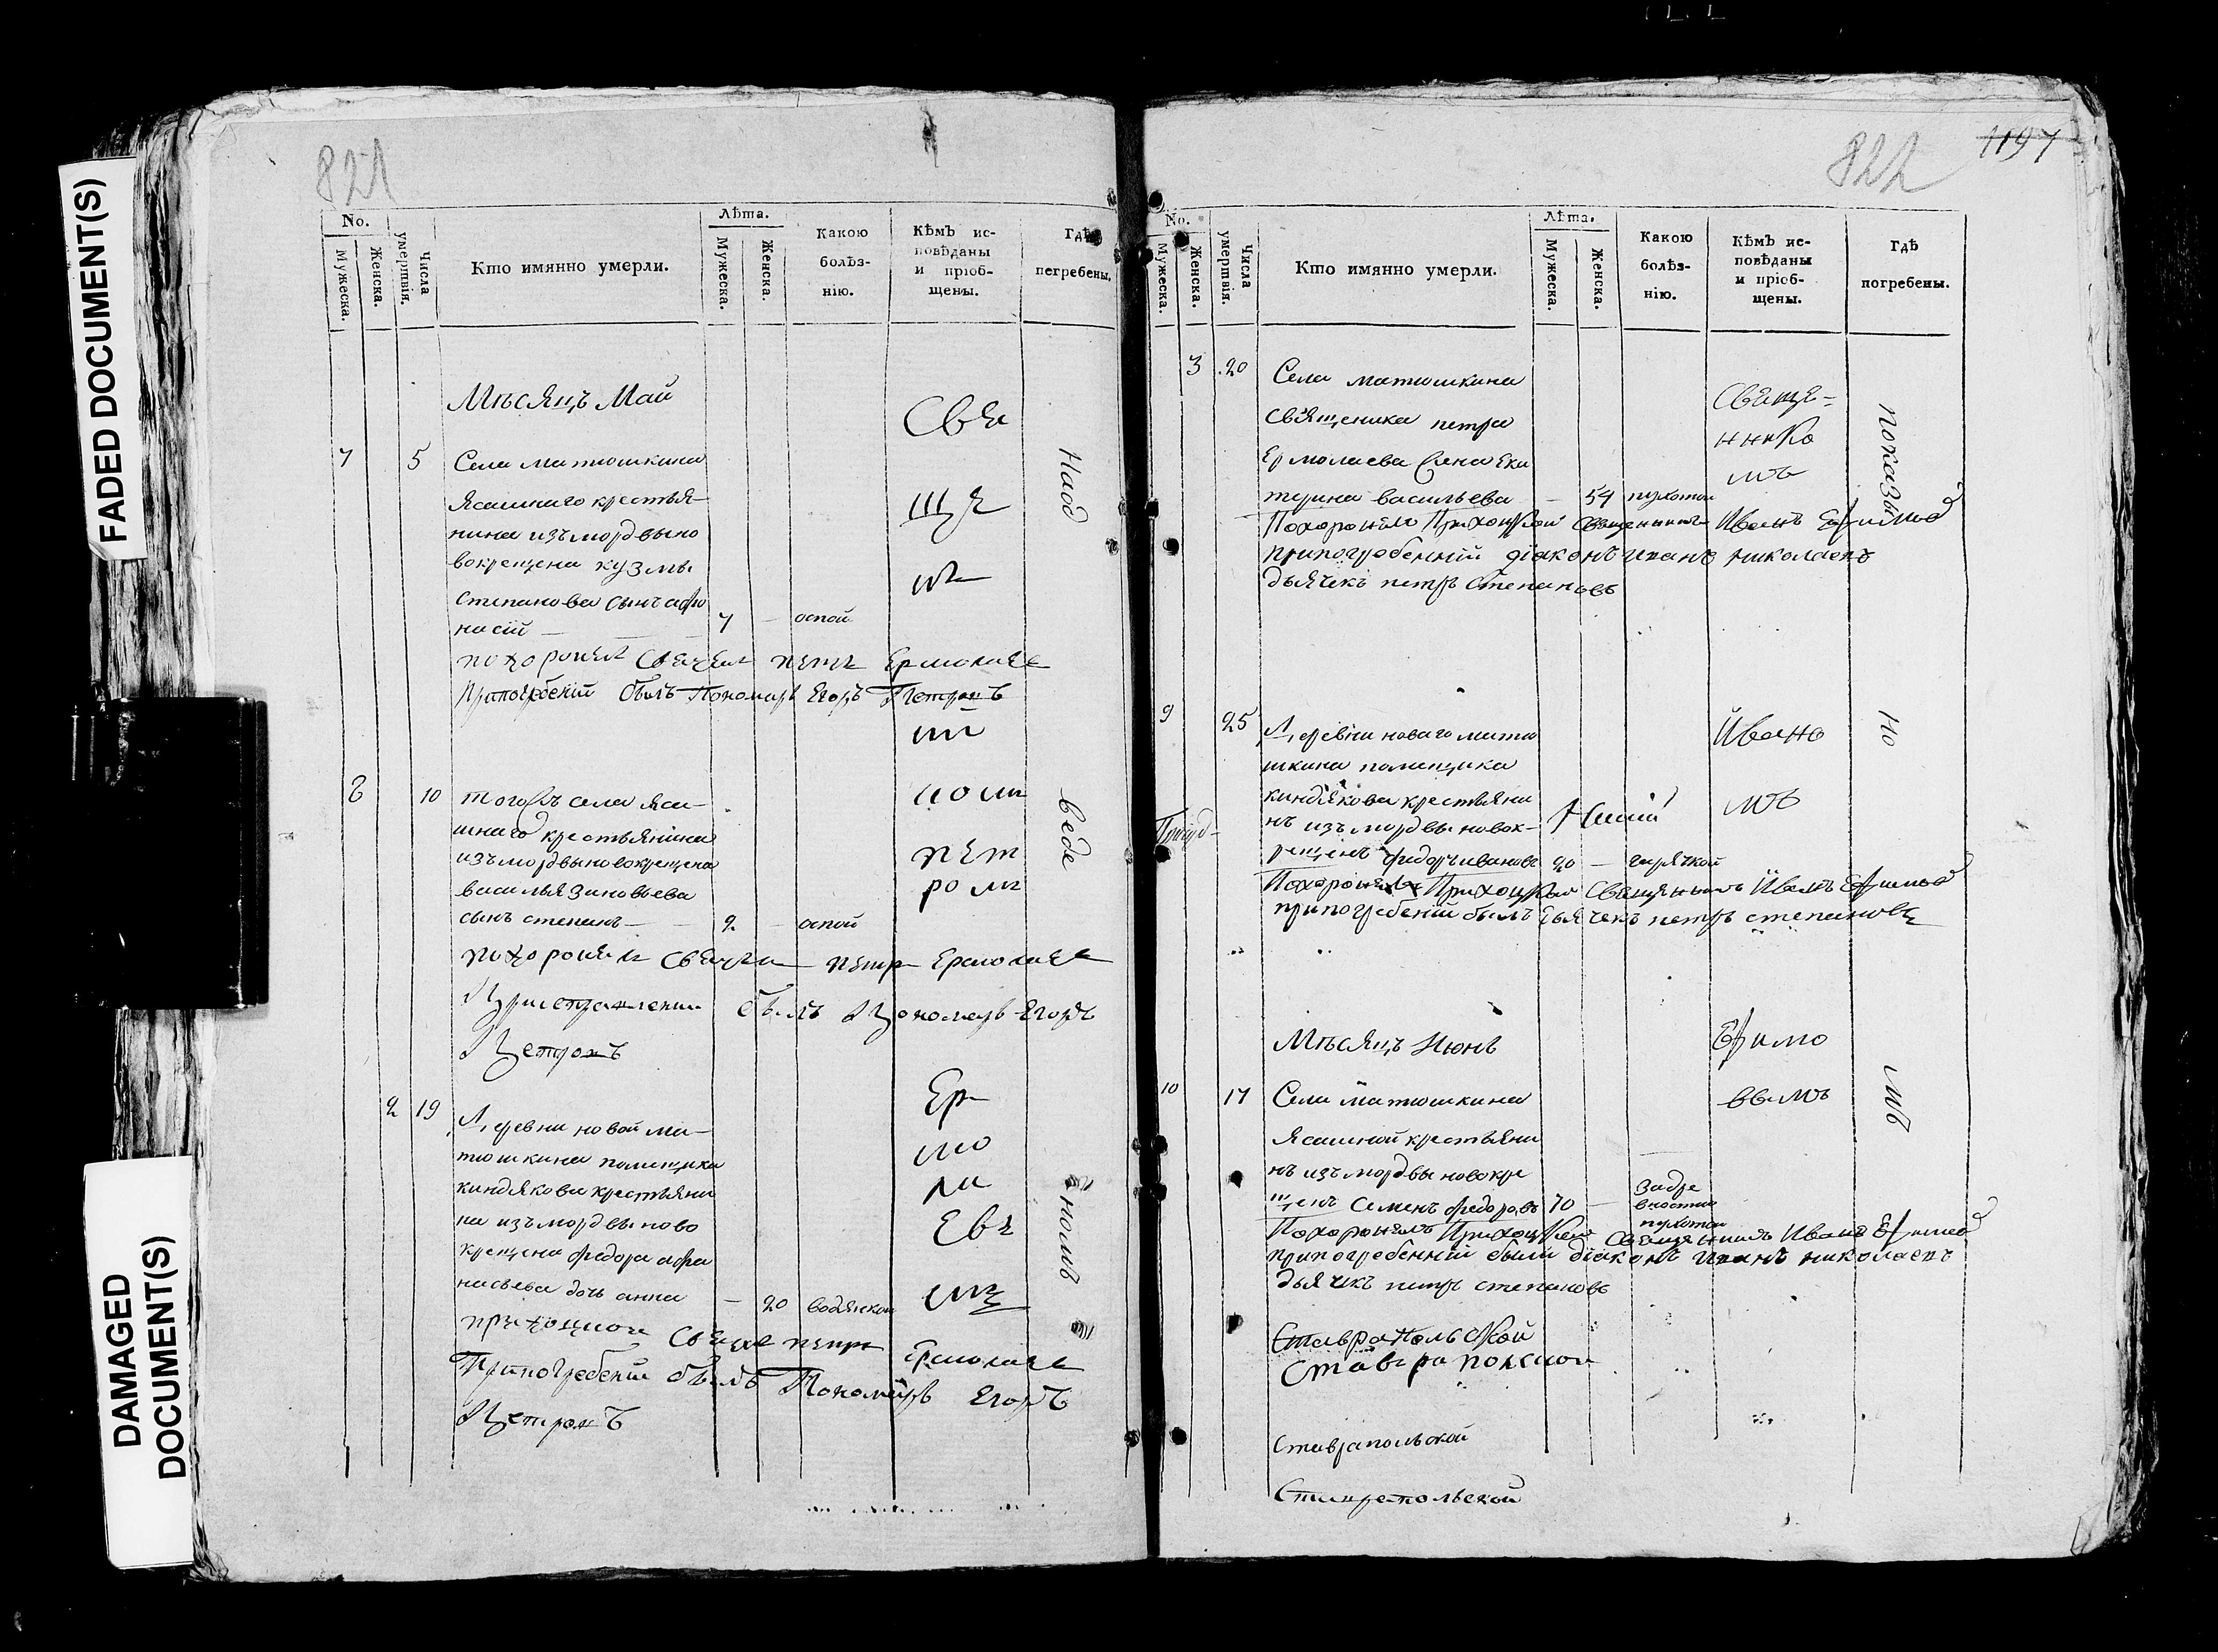 FADED DOCUMENT(S)
DAMAGED
DOCUMENT(S)
821
No.
Мужеска.
Женска.
Числа
умертвія.
Кто имянно умерли.
Лѣта.
Мужеска.
Женска.
Какою
болѣз-
нію.
Кѣмъ ис-
повѣданы
и пріоб-
щены.
Гдѣ
погребены,
Мѣсяцъ Май
7 5 Села матюшкина
ясашнаго крестья-
нина изъ мордвы но
вокрещена кузмы
степанова сынъ афо
насій 7 оспой
похоронил Священ петръ Ермолаев
Припогребеніи былъ Пономарь Егоръ Петровъ
8 10 тогожъ села яса-
шнаго крестьянина
изъ мордвы новокрещена
василья зиновьева
сынъ степанъ 2 оспой
похоронил Священ петр Ермолаев
былъ Пономарь Егоръ
Петровъ
2 19 Деревни новой ма-
тюшкина помещика
киндякова крестьяни
на изъ мордвы ново
крещена федора афа
насьева дочь анна 20 водянкой
Священ петр Ермолаев
Припогребеніи былъ Пономарь Егоръ
Петровъ
Свя
ще
ни
комъ
пет
ромъ
Ер
мо
ла
Евы
мъ
822
1197
No.
Мужеска.
Женска.
Числа
умертвія.
Кто имянно умерли.
Лѣта.
Мужеска.
Женска.
Какою
болѣз-
нію.
Кѣмъ ис-
повѣданы
и пріоб-
щены.
Гдѣ
погребены.
3 20 Села матюшкина
священика петра
Ермолаева жена Ека
терина васильева 54
Похоронилъ Приходской Священникъ Иванъ Ефимов
припогребенній діаконъ иванъ николаевъ
дьячекъ петръ степановъ
9 25 Деревни новаго матю
шкина помещика
киндякова крестьяни
нъ изъ мордвы новок-
рещенъ федоръ ивановъ 20 горячкой
Похоронилъ Приходской Священникъ Иванъ Ефимов
припогребеній былъ дьячекъ петръ степановъ
Мѣсяцъ Июнь
10 17 Села матюшкина
Ясашной крестьяни
нъ изъ мордвы новокре
щенъ Семенъ федоровъ 70
Похоронилъ Приходской Священникъ Иванъ Ефимов
припогребенній были діаконъ иванъ николаевъ
дьячекъ петръ степановъ
Ставропольской
Ставропольской
Ставропольской
Ставропольской
Свяще-
ннико
мъ
Ивано
мъ
Ефимо
вымъ